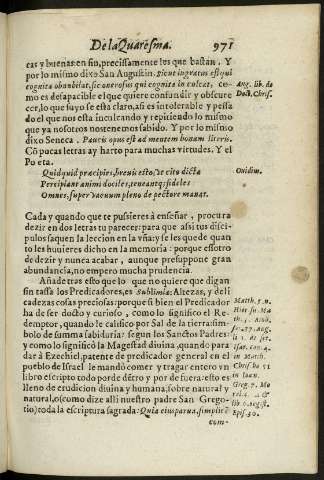 De la Quaresma. 971
cas y buenas en fin, precissamente les que bastan. Y
por lo mismo dixo San Augustin. Sicut ingratus est qui
cognita obnubilat, sic onerosus qui cognita inculcat, co-
mo es desapacible el que quiere confundir y obscure
cer, lo que suyo se esta claro, assi es intolerable y pessa
do el que nos esta inculcando y repitiendo lo mismo
que ya nosotros nos tenemos sabido. Y por lo mismo
dixo Seneca. Paucis opus est ad mentem bonam literis.
Cõ pocas letras ay harto para muchas virtudes. Y el
Poeta.
Aug. lib. de
Doct. Chris.
Quidquid præcipies, brevis esto, ut cito dicta
Percipiant animi dociles, teneantq; fideles
Omnes, super vacuum pleno de pectore manat.
Ouidius.
Cada y quando que te pusieres à enseñar, procura
dezir en dos letras tu parecer: para que assi tus disci-
pulos saquen la leccion en la vña; y se les quede quan
to les huuieres dicho en la memoria: porque essotro
de dezir y nunca acabar, aunque presuppone gran
abundancia, no empero mucha prudencia.
Añade tras esto que lo que no quiere que digan
sin tassa los Predicadores, es Sublimia: Altezas, y deli
cadezas cosas preciosas: porque si bien el Predicador
ha de ser docto y curioso, como lo significò el Re-
demptor, quando le califico por Sal de la tierra: sim-
bolo de summa sabiduria: segun los Sanctos Padres:
y como lo significò la Magestad diuina, quando para
dar à Ezechiel, patente de predicador general en el
pueblo de Israel le mandò comer y tragar entero vn
libro escripto todo por de dẽtro y por de fuera: esto es
lleno de erudicion diuina y humana, sobre natural y
natural, o (como dize alli nuestro padre San Grego-
rio) toda la escriptura sagrada: Quia eius parua, simplices
Matth. 5. n.
in Matth.
in locu.
Greg. 7. Mo
Epis. 30.
com-